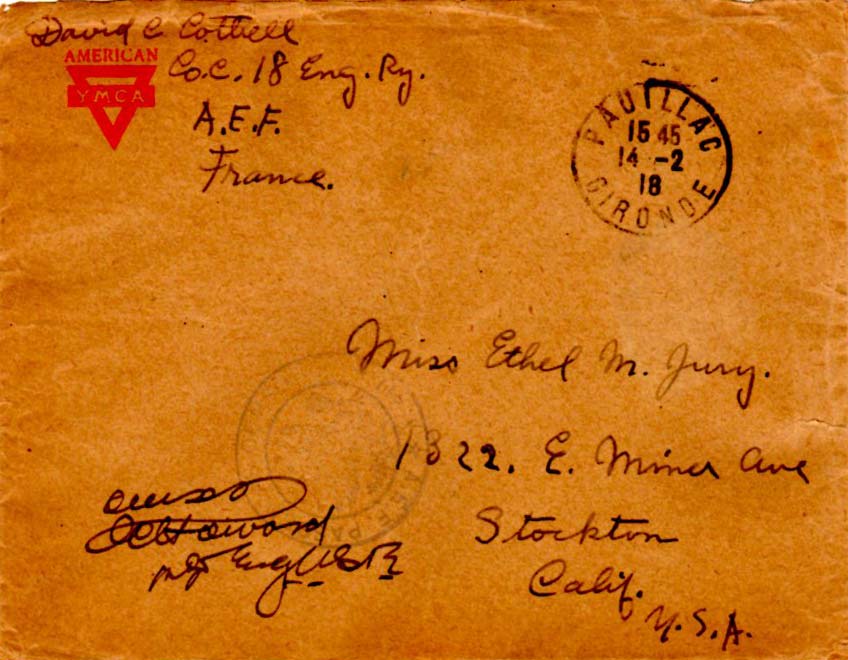 David C Cottrell
AMERICAN
YMCA
Co. C. 18 Eng. Ry.
A.E.F.
France.
PAUILLAC
15 45
14 -2
18
GIRONDE
Miss Ethel M. Jury.
1322. E. Miner Ave
Stockton
Calif.
U.S.A.
Howard